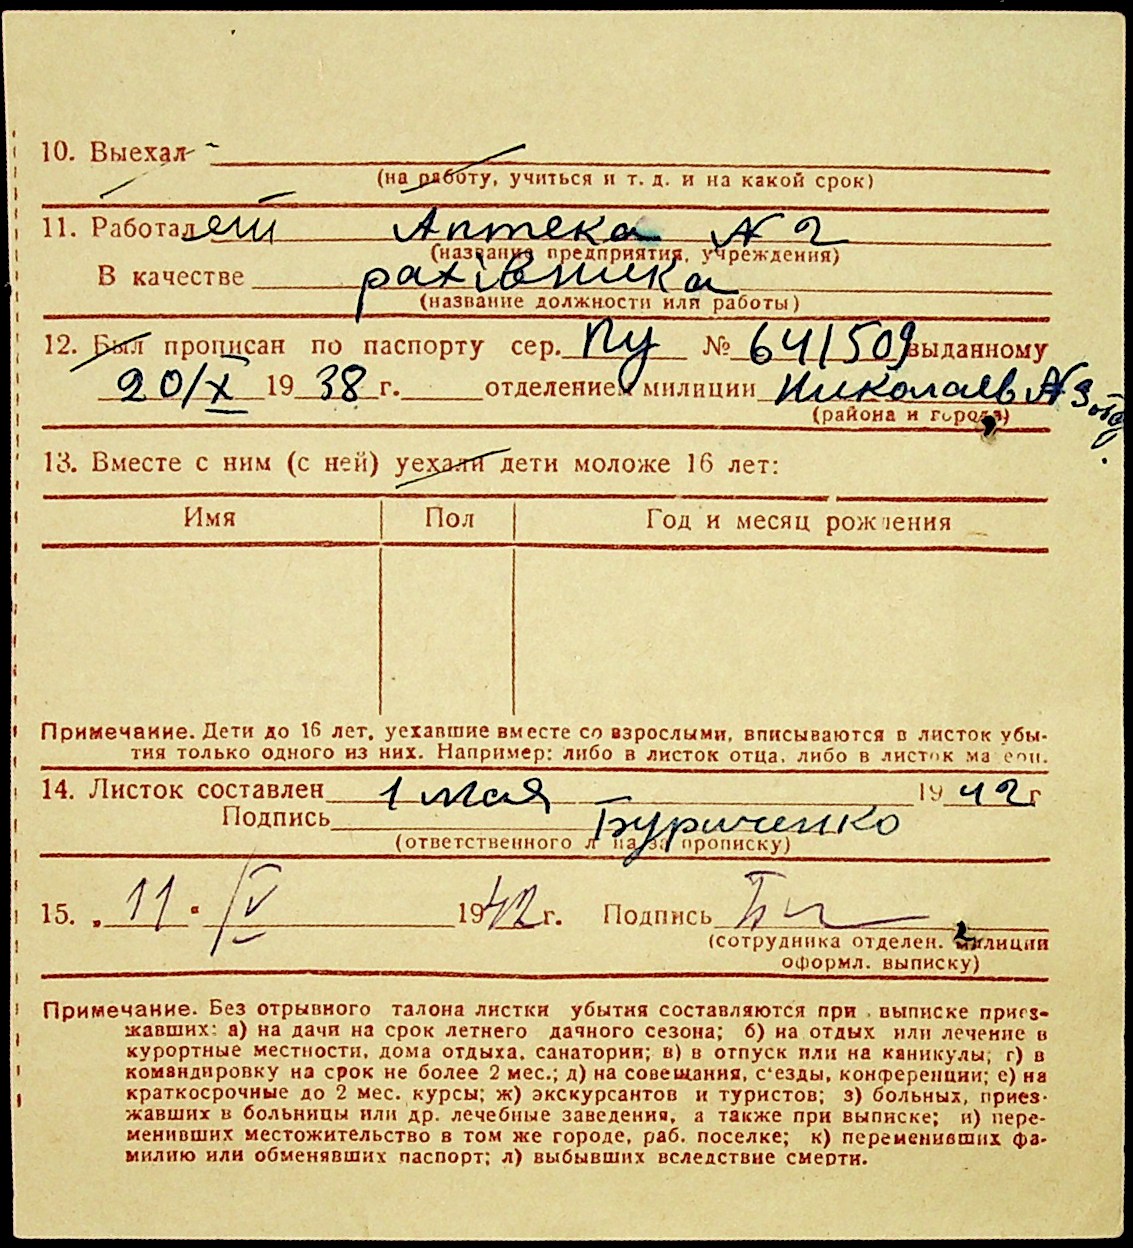 10. Выехал
(на работу, учиться и т. д. и на какой срок)
11. Работал Аптека № 2
(название предприятия, учреждения)
В качестве рахівника
(название должности или работы)
12. Был прописан по паспорту сер. ПУ № 641509 выданному
20/X 1938 г. отделением милиции Николаев № 3 отд.
(района и города)
13. Вместе с ним (с ней) уехали дети моложе 16 лет:
Имя Пол Год и месяц рождения
Примечание. Дети до 16 лет, уехавшие вместе со взрослыми, вписываются в листок убы-
тия только одного из них. Например: либо в листок отца, либо в листок ма ери.
14. Листок составлен 1 мая 1942 г
Подпись Буриченко
(ответственного л на за прописку)
15. „11" /V 1942 г. Подпись
(сотрудника отделен. милиции
оформл. выписку)
Примечание. Без отрывного талона листки убытия составляются при выписке приез-
жавших: а) на дачи на срок летнего дачного сезона; б) на отдых или лечение в
курортные местности, дома отдыха, санатории; в) в отпуск или на каникулы; г) в
командировку на срок не более 2 мес.; д) на совещания, с'езды, конференции; е) на
краткосрочные до 2 мес. курсы; ж) экскурсантов и туристов; з) больных, приез-
жавших в больницы или др. лечебные заведения, а также при выписке; и) пере-
менивших местожительство в том же городе, раб. поселке; к) переменивших фа-
милию или обменявших паспорт; л) выбывших вследствие смерти.